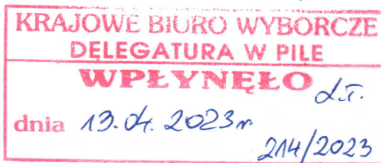 KRAJOWE BIURO WYBORCZE
DELEGATURA W PILE
WPŁYNĘŁO
dnia 13.04.2023r
214/2023